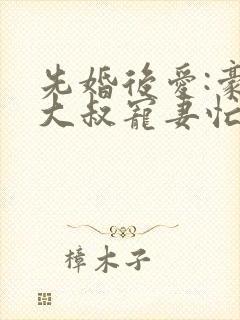 先婚後愛:豪
大叔寵妻忙
樟木子